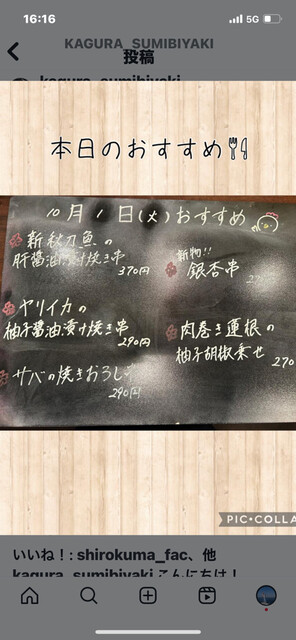 16:16
5G 56
KAGURA_SUMIBIYAKI
投稿
kagura_sumibiyaki
本日のおすすめ
10月1日(火)おすすめ
新秋刀魚の
肝醤油漬け焼き串
370円
ヤリイカの
柚子醤油漬け焼き串
290円
サバの焼きおろし
290円
新物!!
銀杏串
肉巻き蓮根の
柚子胡椒乗せ
270
PIC•COLLA
いいね！: shirokuma_fac、他
kagura_sumibiyaki こんにちは！